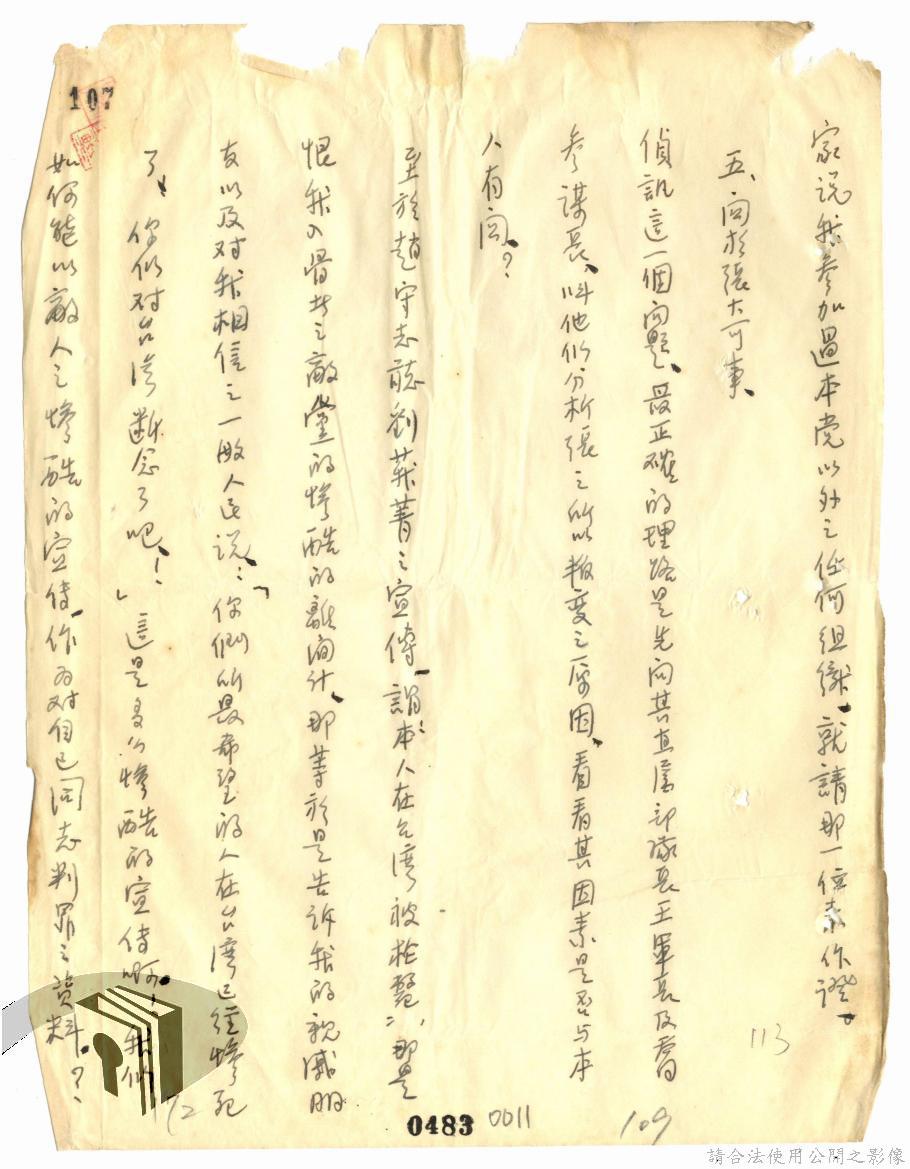 家说我参加過本党以外之任何组織、就請那一位来作證。
五、関於張大可事、
偵訊這一個问题、最正确的理路是先向其直屬部隊長王軍長及曹
参謀長、叫他们分析張之所以叛变之原因、看看其因素是否与本
人有関。？
至於趙守志聽劉英菁之宣傳、謂：本人在台湾被枪斃」，那是
恨我入骨者之敵黨的惨酷的離间计、那等於是告訴我的親戚朋
友以及对我相信之一般人民说：「你們所最希望的人在台湾已经惨死
了、你们对台湾断念了吧！」這是多么惨酷的宣传啊！我们
如何能以敵人之惨酷的宣传、作为对自己同志判罪之資料。？
107
113
109
72
0483
0011
請合法使用公開之影像